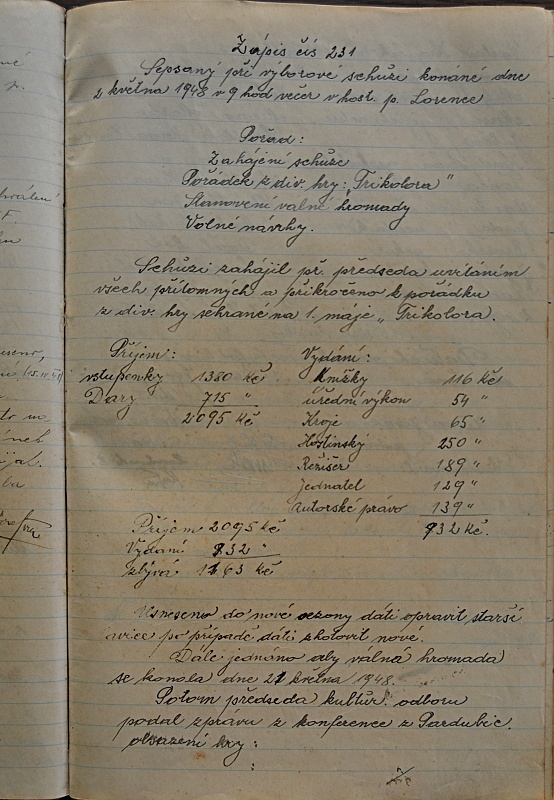 Zápis čís 231
Sepsaný při výborové schůzi konáné dne
2 května 1948 v 9 hod večer v host. p. Lorence
Pořad:
Zahájení schůze
Pořádek z div. hry: „Trikolora"
Stanovení valné hromady
Volné návrhy.
Schůzi zahájil př. předseda uvítáním
všech přítomných a přikročeno k pořádku
z div. hry sehrané na 1. máje „Trikolora.
Příjem:
vstupenky 1380 Kč
Dary 715 "
2095 Kč
Vydání:
Knížky 116 Kč
úřední výkon 54 "
Kroje 65 "
Hostinský 250 "
Režisér 189 "
Jednatel 129 "
autorské právo 139 "
932 Kč.
Příjem 2095 Kč
Vydání 932 "
zbývá 1163 Kč
Usneseno do nové sezony dáti opravit starší
lavice po případě dáti zhotovit nové.
Dále jednáno aby válná hromada
se konala dne 21 května 1948.
Potom předseda kultur. odboru
podal zprávu z konference z Pardubic.
obsazení hry: